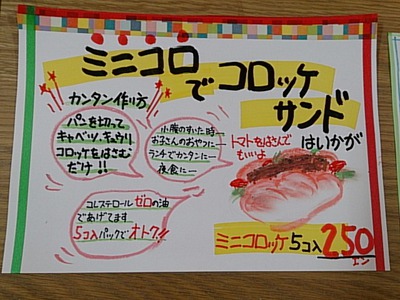 ミニコロでコロッケ
サンド
はいかが
カンタン作り方
パンを切って
キャベツ、キュウリ
コロッケをはさむ
だけ!!
小腹のすいた時ー
お子さんのおやつにー
ランチでカンタンにー
夜食にー
トマトをはさんで
もいいよ
コレステロールゼロの油
であげてます
5コ入パックでオトク!!
ミニコロッケ5コ入250
エン